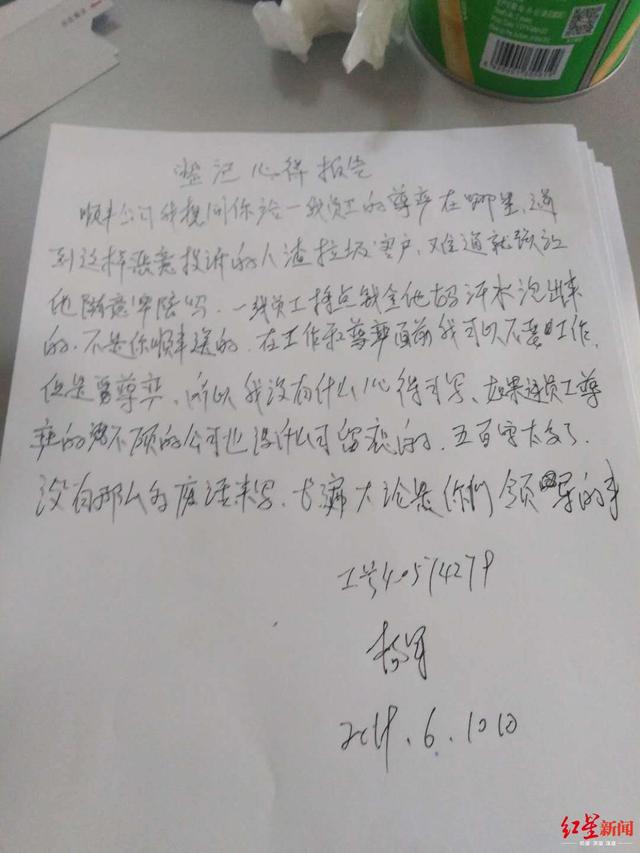 登记心得报告
顺丰公司我想问你给一线员工的尊严在哪里，遇
到这样恶意投诉的人渣垃圾客户，难道就该让
他随意 吗，一线员工挣点钱全他妈汗水泡出来
的，不是你顺丰送的，在工作和尊严面前我可以不要工作，
但是要尊严，所以我没有什么心得可写，如果连员工尊
严的都不顾的公司也没什么可留恋的，五百字太多了，
没有那么多废话来写，长篇大论是你们领导的事
工号40574279
杨军
2019.6.10日
红星新闻